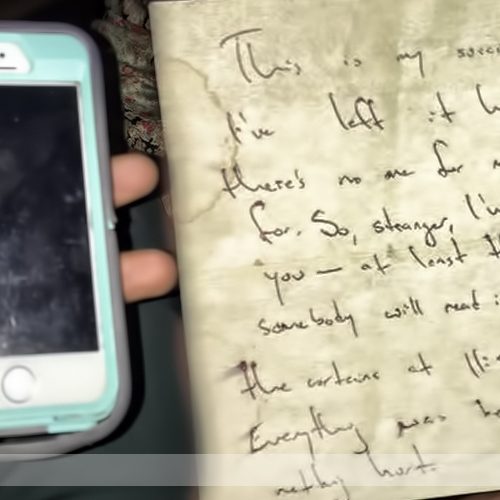 This is my
I've left it
there's no one for
for. So, stranger, I'm
you — at least
somebody will read
the at
Everything was
nothing hurt.